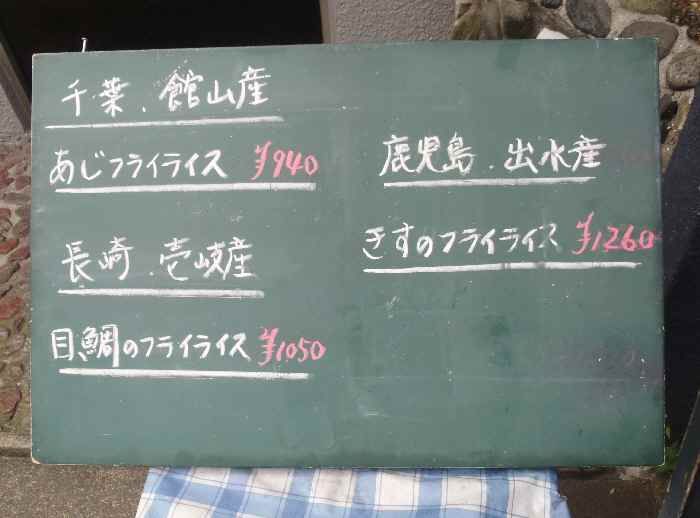 千葉、館山産
あじフライライス ¥940
長崎、壱岐産
目鯛のフライライス ¥1050
鹿児島、出水産
きすのフライライス ¥1260